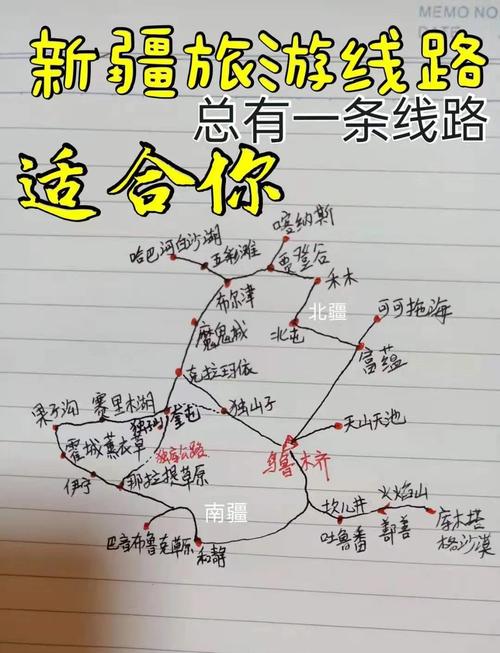 MEMO NO
DATE
新疆旅游线路
总有一条线路
适合你
喀纳斯
哈巴河白沙湖
五彩滩
贾登谷
禾木
布尔津
北疆
可可拖海
魔鬼城
北屯
富蕴
克拉玛依
果子沟
赛里木湖
独山子
奎屯
独山子
天山天池
霍城薰衣草
独库公路
乌鲁木齐
伊宁
那拉提草原
坎儿井
火焰山
南疆
吐鲁番
鄯善
库木塔
格沙漠
巴音布鲁克草原
和静